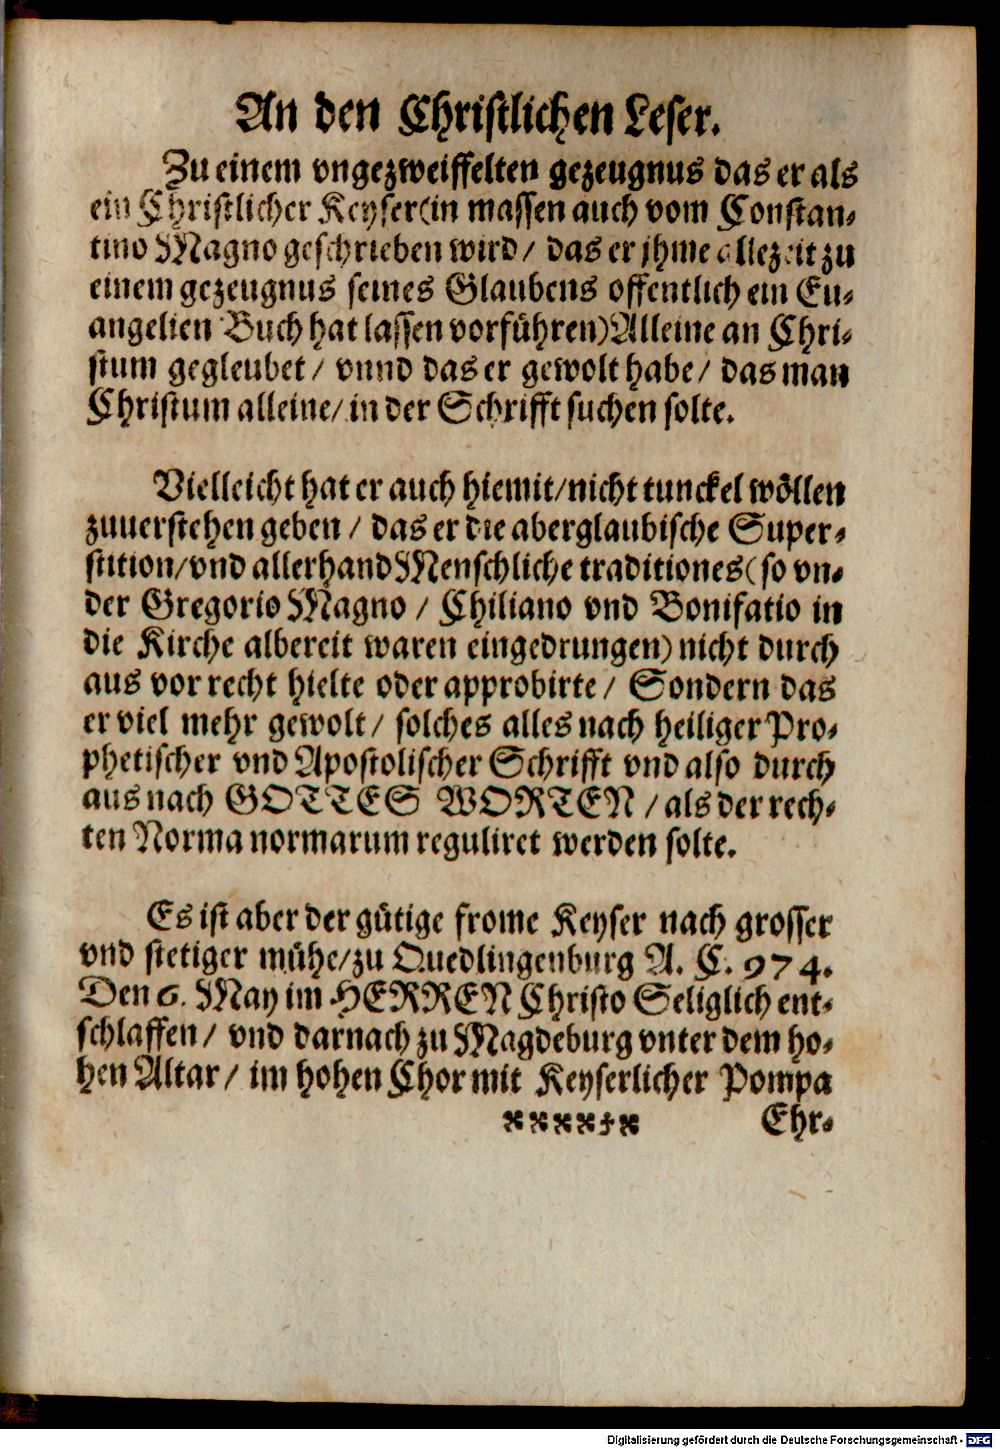 An den Christlichen Leser.
Zu einem vngezweiffelten gezeugnus das er als
ein Christlicher Keyser(in massen auch vom Constan-
tino Magno geschrieben wird/ das er jhme allezeit zu
einem gezeugnus seines Glaubens offentlich ein Eu-
angelien Buch hat lassen vorführen)Alleine an Chri-
stum gegleubet/ vnnd das er gewolt habe/ das man
Christum alleine/ in der Schrifft suchen solte.
Vielleicht hat er auch hiemit/nicht tunckel wöllen
zuuerstehen geben / das er die aberglaubische Super-
stition/vnd allerhand Menschliche traditiones(so vn-
der Gregorio Magno / Chiliano vnd Bonifatio in
die Kirche albereit waren eingedrungen) nicht durch
aus vor recht hielte oder approbirte/ Sondern das
er viel mehr gewolt/ solches alles nach heiliger Pro-
phetischer vnd Apostolischer Schrifft vnd also durch
aus nach GOTTES WORTEN /als der rech-
ten Norma normarum reguliret werden solte.
Es ist aber der gütige frome Keyser nach grosser
vnd stetiger mühe/zu Quedlingenburg A. C. 974.
Den 6. May im HERREN Christo Seliglich ent-
schlaffen/ vnd darnach zu Magdeburg vnter dem ho-
hen Altar/ im hohen Chor mit Keyserlicher Pompa
Ehr-
Digitalisierung gefördert durch die Deutsche Forschungsgemeinschaft - DFG